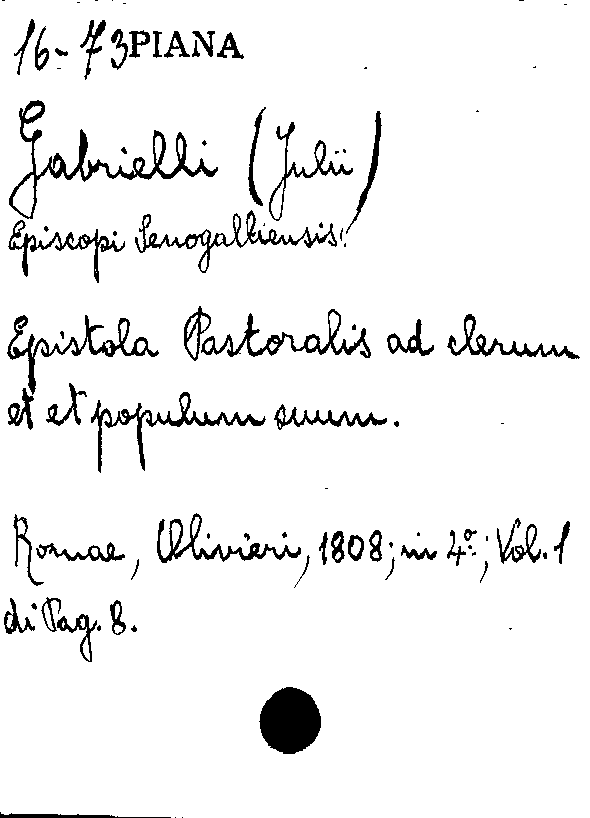 16-73 PIANA
Gabrielli (Julii)
Episcopi Senogalliensis.
Epistola Pastoralis ad clerum
et et populum suum.
Romae, Olivieri, 1808; in 4º; Vol. 1
di Pag. 8.